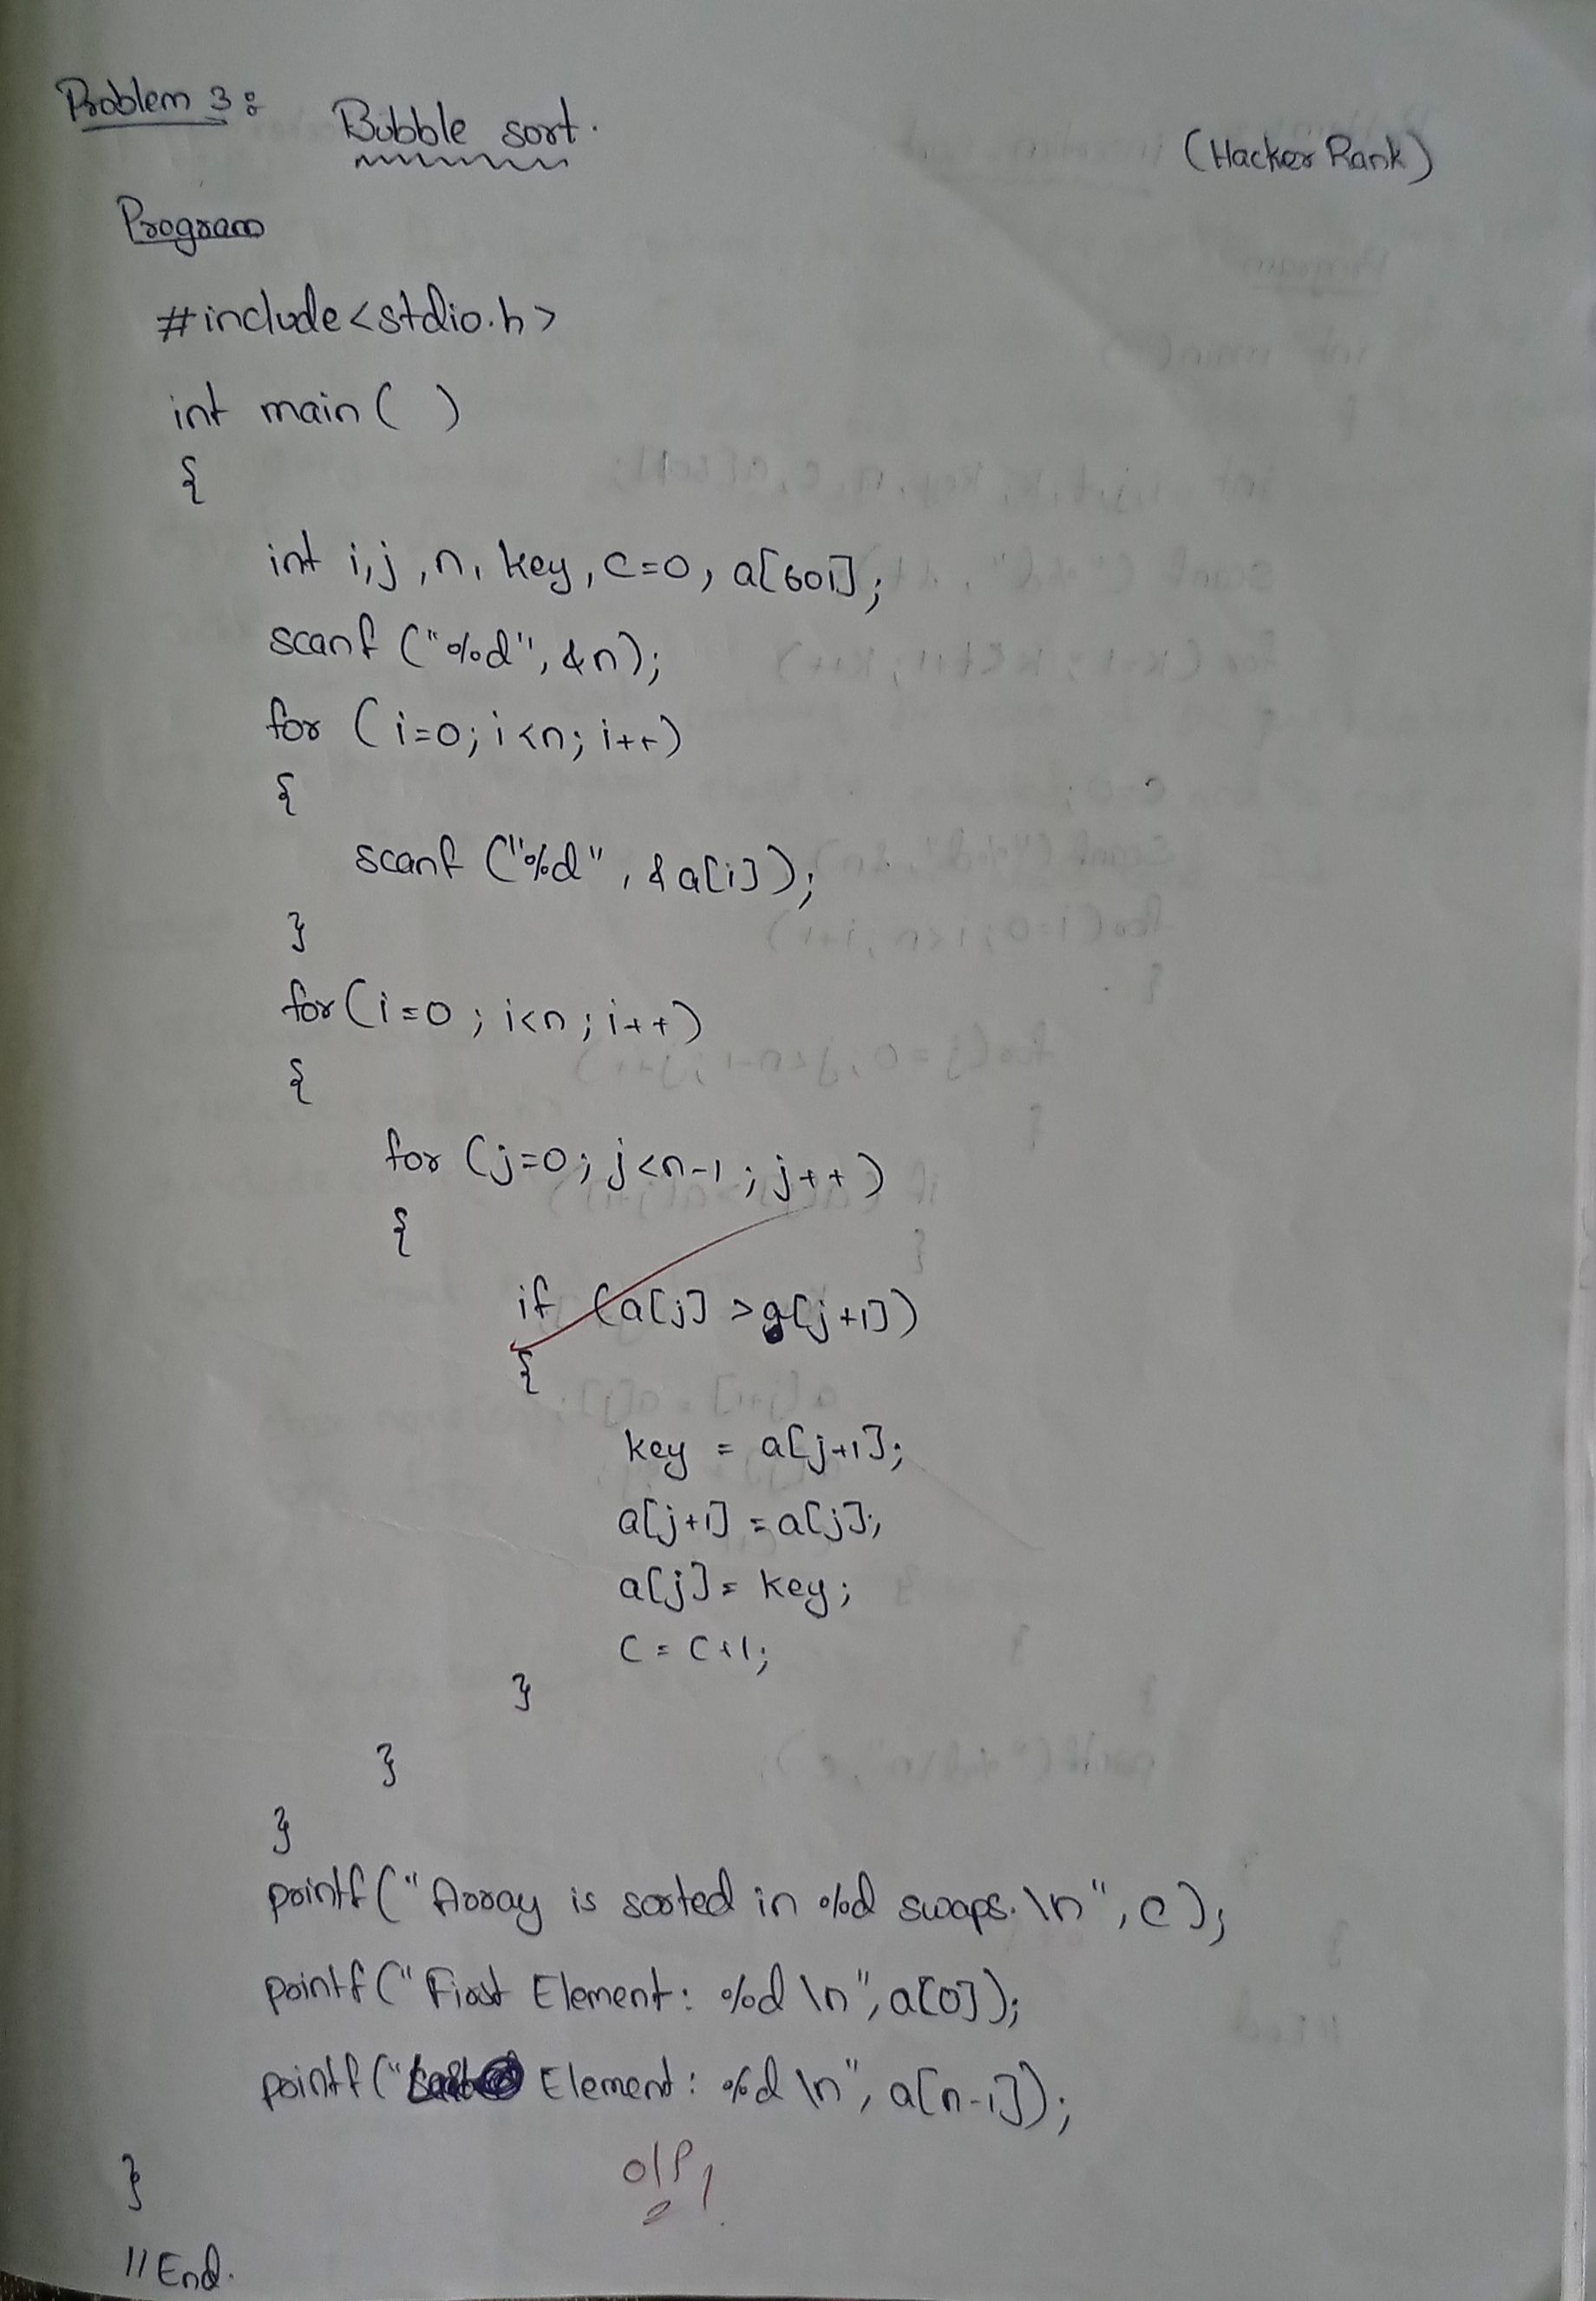 Problem 3:
Bubble sort.
(Hacker Rank)
Program
#include<stdio.h>
int main( )
{
int i,j,n, key, c=0, a[601];
scanf ("%d", &n);
for (i=0; i<n; i++)
{
scanf ("%d", &a[i]);
}
for(i=0; i<n; i++)
{
for (j=0; j<n-1; j++)
{
if (a[j] >a[j+1])
{
key = a[j+1];
a[j+1] = a[j];
a[j] = key;
c = c+1;
}
}
}
printf("Array is sorted in %d swaps. \n", c);
printf("First Element: %d \n", a[0]);
printf("Last Element: %d \n", a[n-1]);
}
o/p
//End.